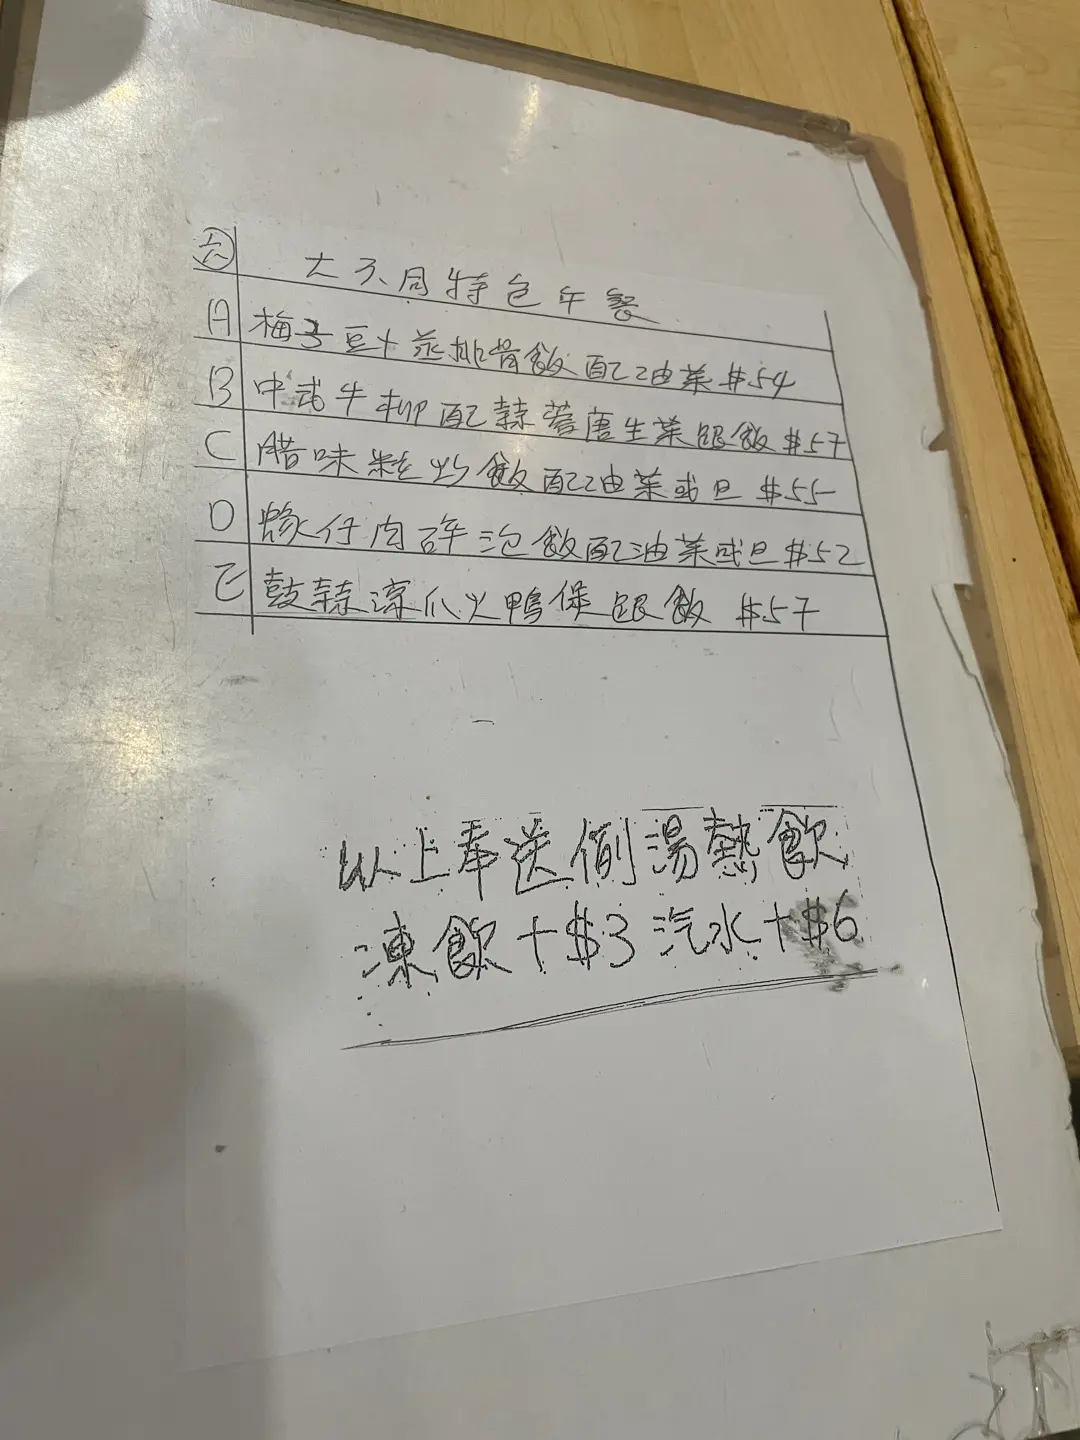 六 大不同特色午餐
A 梅子豆十蒸排骨飯配油菜 $54
B 中式牛柳配蒜蓉唐生菜跟飯 $57
C 腊味粒炒飯配油菜或旦 $55
D 蠔仔肉碎泡飯配油菜或旦 $52
E 鼓蒜涼瓜火鴨煲跟飯 $57
以上奉送例湯熱飲
凍飲+$3 汽水+$6